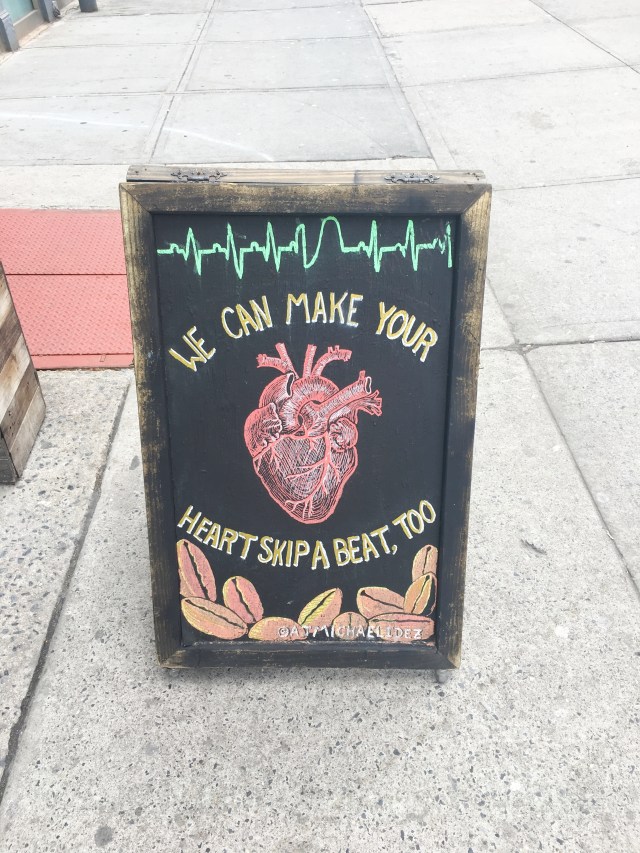 WE CAN MAKE YOUR
HEART SKIP A BEAT, TOO
@AJMICHAELIDEZ